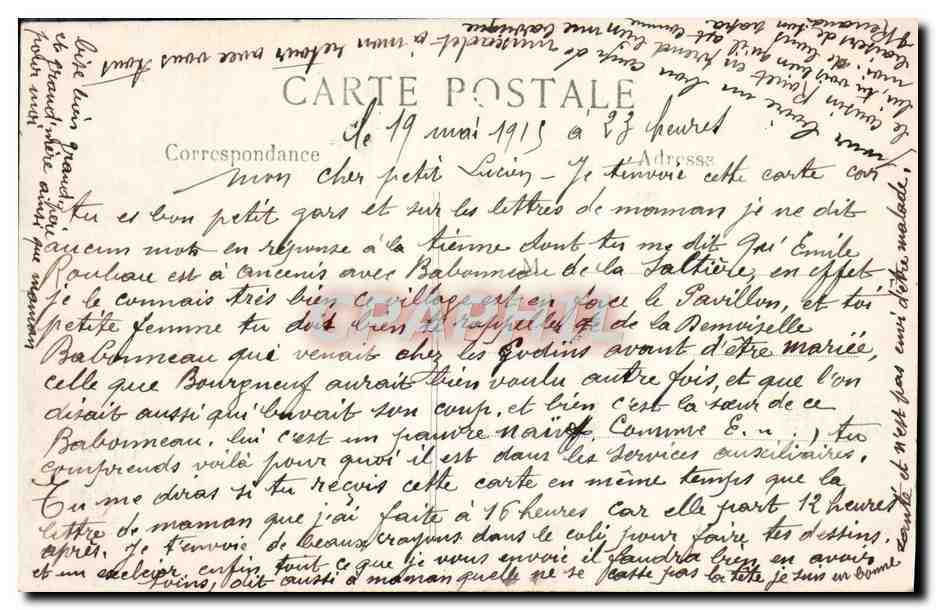 CARTE POSTALE
le 19 mai 1915 à 23 heures
Correspondance
Adresse
mon cher petit Lucien - Je t'envoie cette carte car
tu es bon petit gars et sur les lettres de maman je ne dit
aucun mots en réponse à la tienne dont tu me dit qu'Emile
Roubau est à Ancenis avec Babonneau de la Saltière, en effet
je le connais très bien ce village est en face le Pavillon, et toi
petite femme tu dois bien te rappeller de de la Demoiselle
Babonneau qui venait chez les Godins avant d'être mariée,
celle que Bourgneuf aurait bien voulu autre fois, et que l'on
disait aussi qui buvait son coup, et bien c'est la sœur de ce
Babonneau, lui c'est un pauvre naïf. Comme E. u..) tu
comprends voilà pour quoi il est dans les services auxiliaires.
Tu me diras si tu reçois cette carte en même temps que la
lettre de maman que j'ai faite à 16 heures car elle part 12 heures
après. Je t'envoie de beaux crayons dans le coli pour faire tes dessins.
et un enfin tout ce que je vous envoie il faudra bien en avoir
soins, dit aussi à maman quelle ne se casse pas la tête je suis en bonne
santé et n'est pas envi d'être malade.
le cousin en prend bien me
lui, tu vois bien qu'il est comme
moi. de
baisers de ton papa
boire un bon coup de muscadet à mon retour avec vous tous
bise bien grand-père
et grand'mère ainsi que maman
pour moi
CPARAMA